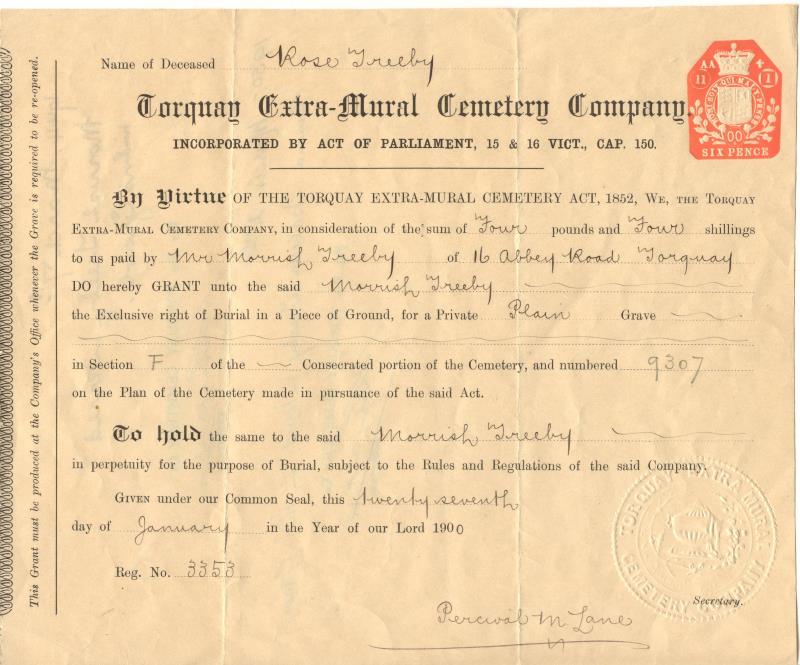 Name of Deceased Rose Treeby
Torquay Extra-Mural Cemetery Company,
INCORPORATED BY ACT OF PARLIAMENT, 15 & 16 VICT., CAP. 150.
By Virtue OF THE TORQUAY EXTRA-MURAL CEMETERY ACT, 1852, WE, THE TORQUAY
EXTRA-MURAL CEMETERY COMPANY, in consideration of the sum of Four pounds and Four shillings
to us paid by Mr Morrish Treeby of 16 Abbey Road Torquay
DO hereby GRANT unto the said Morrish Treeby
the Exclusive right of Burial in a Piece of Ground, for a Private Plain Grave
in Section F of the Consecrated portion of the Cemetery, and numbered 9307
on the Plan of the Cemetery made in pursuance of the said Act.
To hold the same to the said Morrish Treeby
in perpetuity for the purpose of Burial, subject to the Rules and Regulations of the said Company.
GIVEN under our Common Seal, this twenty seventh
day of January in the Year of our Lord 1900
Reg. No. 3353
Secretary.
Percival M Lane
This Grant must be produced at the Company's Office whenever the Grave is required to be re-opened.
AA
11 1
HONI SOIT QUI MAL Y PENSE
00
SIX PENCE
TORQUAY EXTRA MURAL
CEMETERY COMPANY